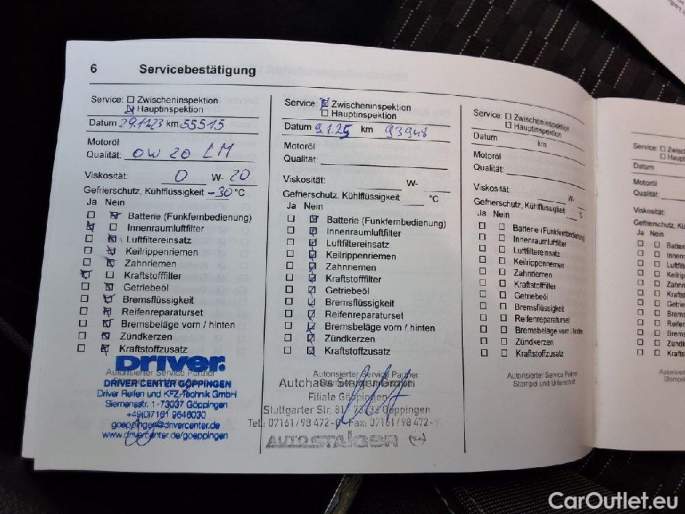 6 Servicebestätigung
Service: ☐ Zwischeninspektion
☒ Hauptinspektion
Datum 29.11.23 km 55515
Motoröl
Qualität: 0W20 LM
Viskosität: 0 W- 20
Gefrierschutz, Kühlflüssigkeit -30 °C
Ja Nein
☐ ☒ Batterie (Funkfernbedienung)
☒ ☐ Innenraumluftfilter
☐ ☒ Luftfiltereinsatz
☐ ☒ Keilrippenriemen
☐ ☒ Zahnriemen
☒ ☐ Kraftstofffilter
☐ ☒ Getriebeöl
☐ ☒ Bremsflüssigkeit
☐ ☒ Reifenreparaturset
☐ ☒ Bremsbeläge vorn / hinten
☐ ☒ Zündkerzen
☐ ☒ Kraftstoffzusatz
Autorisierter Service Partner
Driver.
DRIVER CENTER GÖPPINGEN
Driver Reifen und KFZ-Technik GmbH
Siemensstr. 1 - 73037 Göppingen
+49(0)7161 9646030
goeppingen@drivercenter.de
www.drivercenter.de/goeppingen
Service: ☒ Zwischeninspektion
☐ Hauptinspektion
Datum 9.1.25 km 93948
Motoröl
Qualität:
Viskosität: W-
Gefrierschutz, Kühlflüssigkeit °C
Ja Nein
☐ ☒ Batterie (Funkfernbedienung)
☐ ☒ Innenraumluftfilter
☐ ☒ Luftfiltereinsatz
☐ ☒ Keilrippenriemen
☐ ☒ Zahnriemen
☐ ☒ Kraftstofffilter
☐ ☒ Getriebeöl
☐ ☒ Bremsflüssigkeit
☐ ☒ Reifenreparaturset
☐ ☒ Bremsbeläge vorn / hinten
☐ ☒ Zündkerzen
☐ ☒ Kraftstoffzusatz
Autorisierter Service Partner
Autohaus Staiger GmbH
Filiale Göppingen
Stuttgarter Str. Göppingen
Tel. 07161/98 472-0 Fax: 07161/98 472-
AUTO STAIGER
Service: ☐ Zwischeninspektion
☐ Hauptinspektion
Datum km
Motoröl
Qualität:
Viskosität: W-
Gefrierschutz, Kühlflüssigkeit °C
Ja Nein
☐ ☐ Batterie (Funkfernbedienung)
☐ ☐ Innenraumluftfilter
☐ ☐ Luftfiltereinsatz
☐ ☐ Keilrippenriemen
☐ ☐ Zahnriemen
☐ ☐ Kraftstofffilter
☐ ☐ Getriebeöl
☐ ☐ Bremsflüssigkeit
☐ ☐ Reifenreparaturset
☐ ☐ Bremsbeläge vorn / hinten
☐ ☐ Zündkerzen
☐ ☐ Kraftstoffzusatz
Autorisierter Service Partner
Stempel und Unterschrift
Service: ☐
☐
Datum
Motoröl
Qualität:
Viskosität:
Gefrierschutz, Kü
Ja Nein
☐ ☐ Batter
☐ ☐ Innenr
☐ ☐ Luftfil
☐ ☐ Keilri
☐ ☐ Zahnri
☐ ☐ Krafts
☐ ☐ Getrie
☐ ☐ Brems
☐ ☐ Reifen
☐ ☐ Brems
☐ ☐ Zündk
☐ ☐ Krafts
CarOutlet.eu